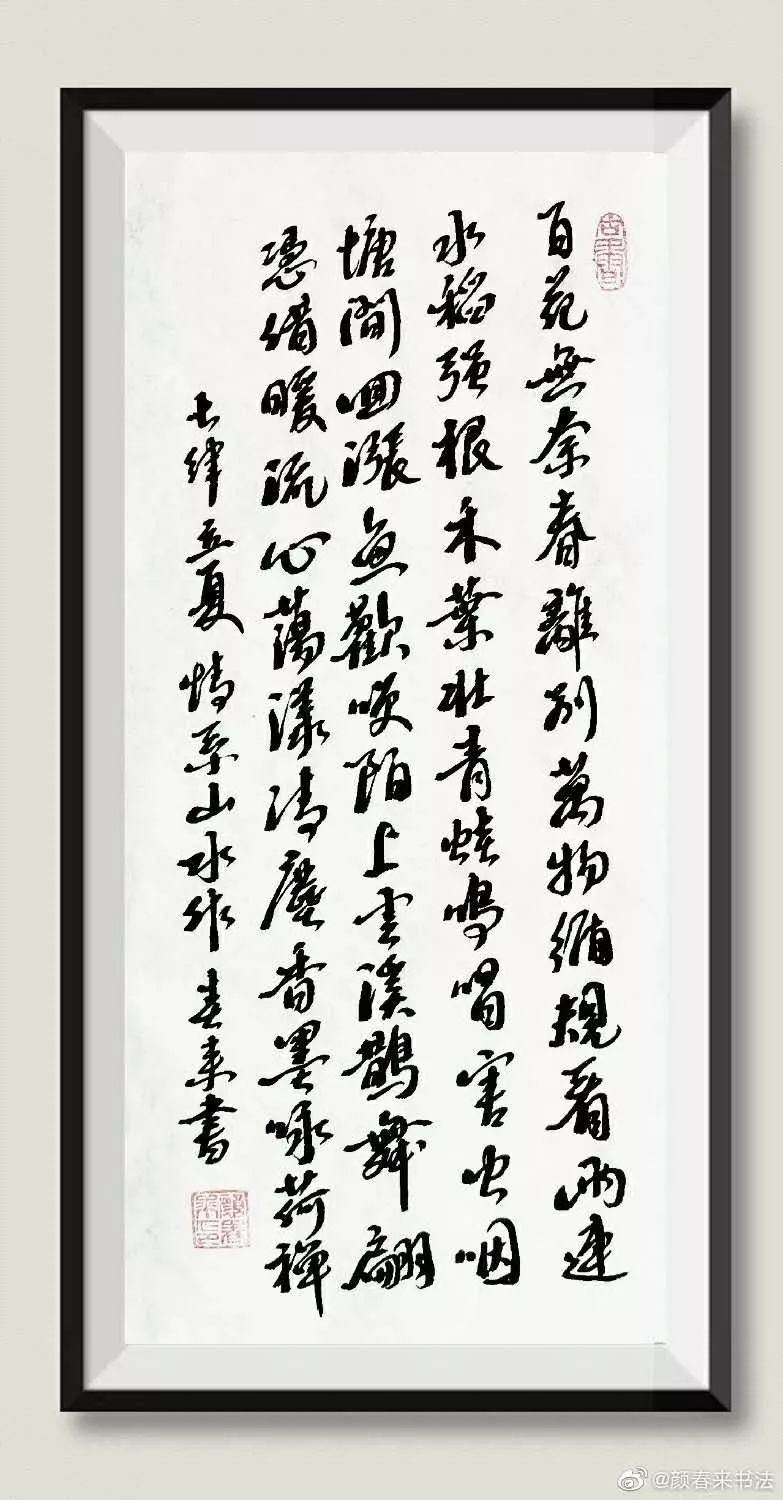 百花無奈春離别萬物循規看雨連
水稻强根禾葉壯青蛙鳴唱害虫咽
塘間回漲魚歡唼陌上雲溪鵲舞翩
憑借暖流心蕩漾清塵香墨咏荷禪
七律立夏 情系山水作 春来書
@颜春来书法